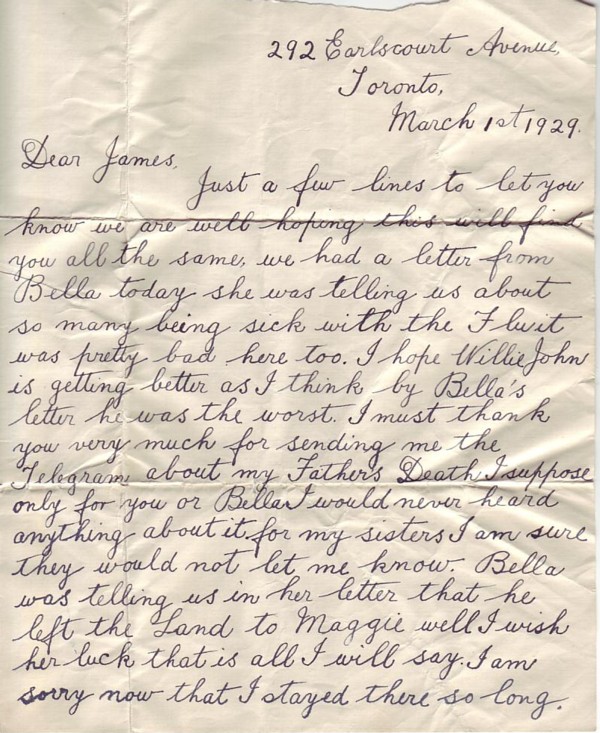 292 Earlscourt Avenue,
Toronto,
March 1st 1929.
Dear James,
Just a few lines to let you
know we are well hoping this will find
you all the same, we had a letter from
Bella today she was telling us about
so many being sick with the Flu it
was pretty bad here too. I hope Willie John
is getting better as I think by Bella's
letter he was the worst. I must thank
you very much for sending me the
Telegram about my Fathers Death I suppose
only for you or Bella I would never heard
anything about it for my sisters I am sure
they would not let me know. Bella
was telling us in her letter that he
left the Land to Maggie well I wish
her luck that is all I will say. I am
sorry now that I stayed there so long.